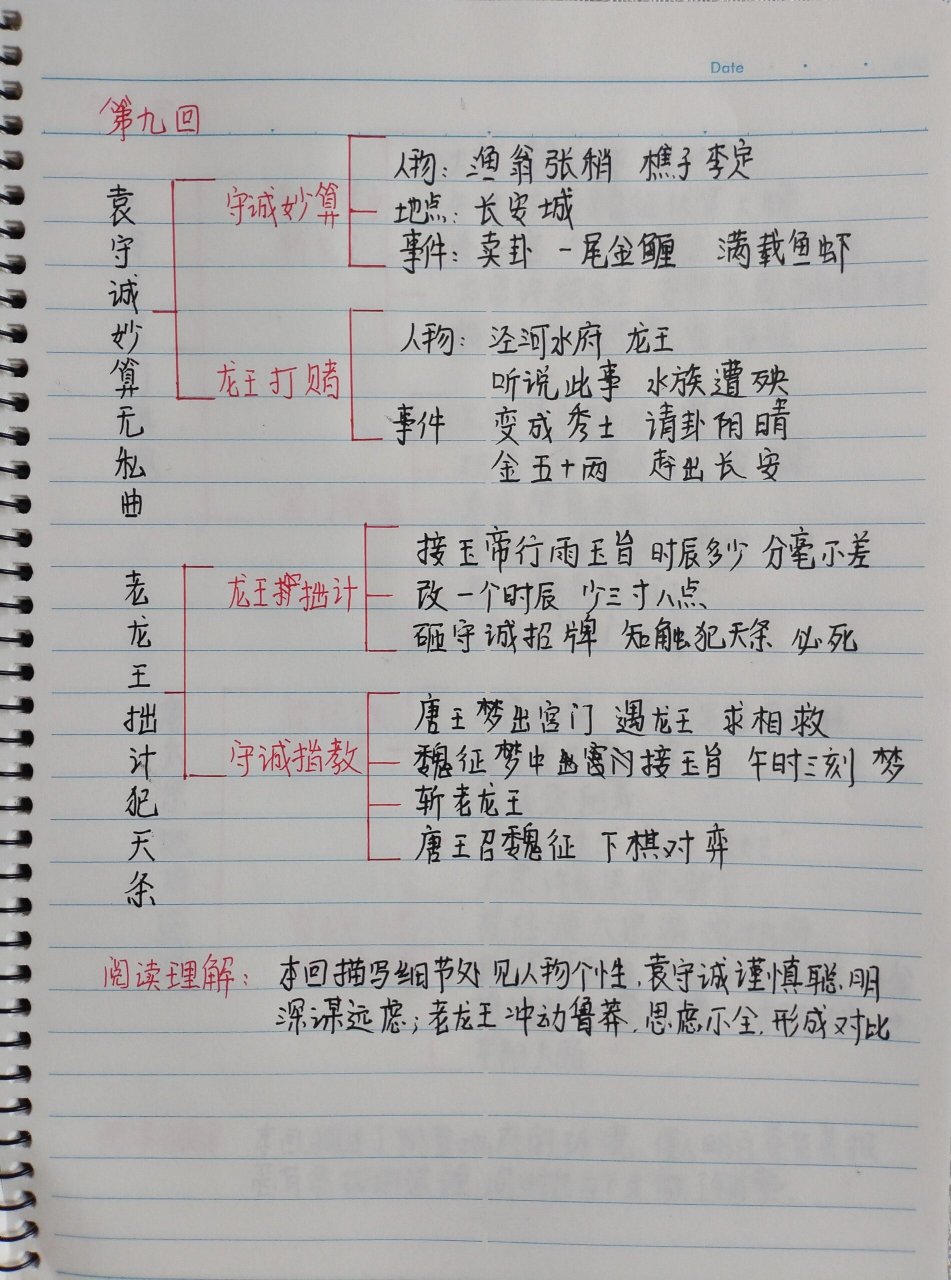 Date
第九回
袁守诚妙算无私曲
守诚妙算
人物：渔翁张稍 樵子李定
地点：长安城
事件：卖卦 一尾金鲤 满载鱼虾
龙王打赌
人物：泾河水府 龙王
听说此事 水族遭殃
事件 变成秀士 请卦阴晴
金五十两 赶出长安
老龙王拙计犯天条
龙王拙计
接玉帝行雨玉旨 时辰多少 分毫不差
改一个时辰 少三寸八点
砸守诚招牌 知触犯天条 必死
守诚指教
唐王梦出宫门 遇龙王 求相救
魏征梦中出窍闪接玉旨 午时三刻 梦
斩老龙王
唐王召魏征 下棋对弈
阅读理解：本回描写细节处见人物个性，袁守诚谨慎聪明
深谋远虑；老龙王冲动鲁莽，思虑不全，形成对比